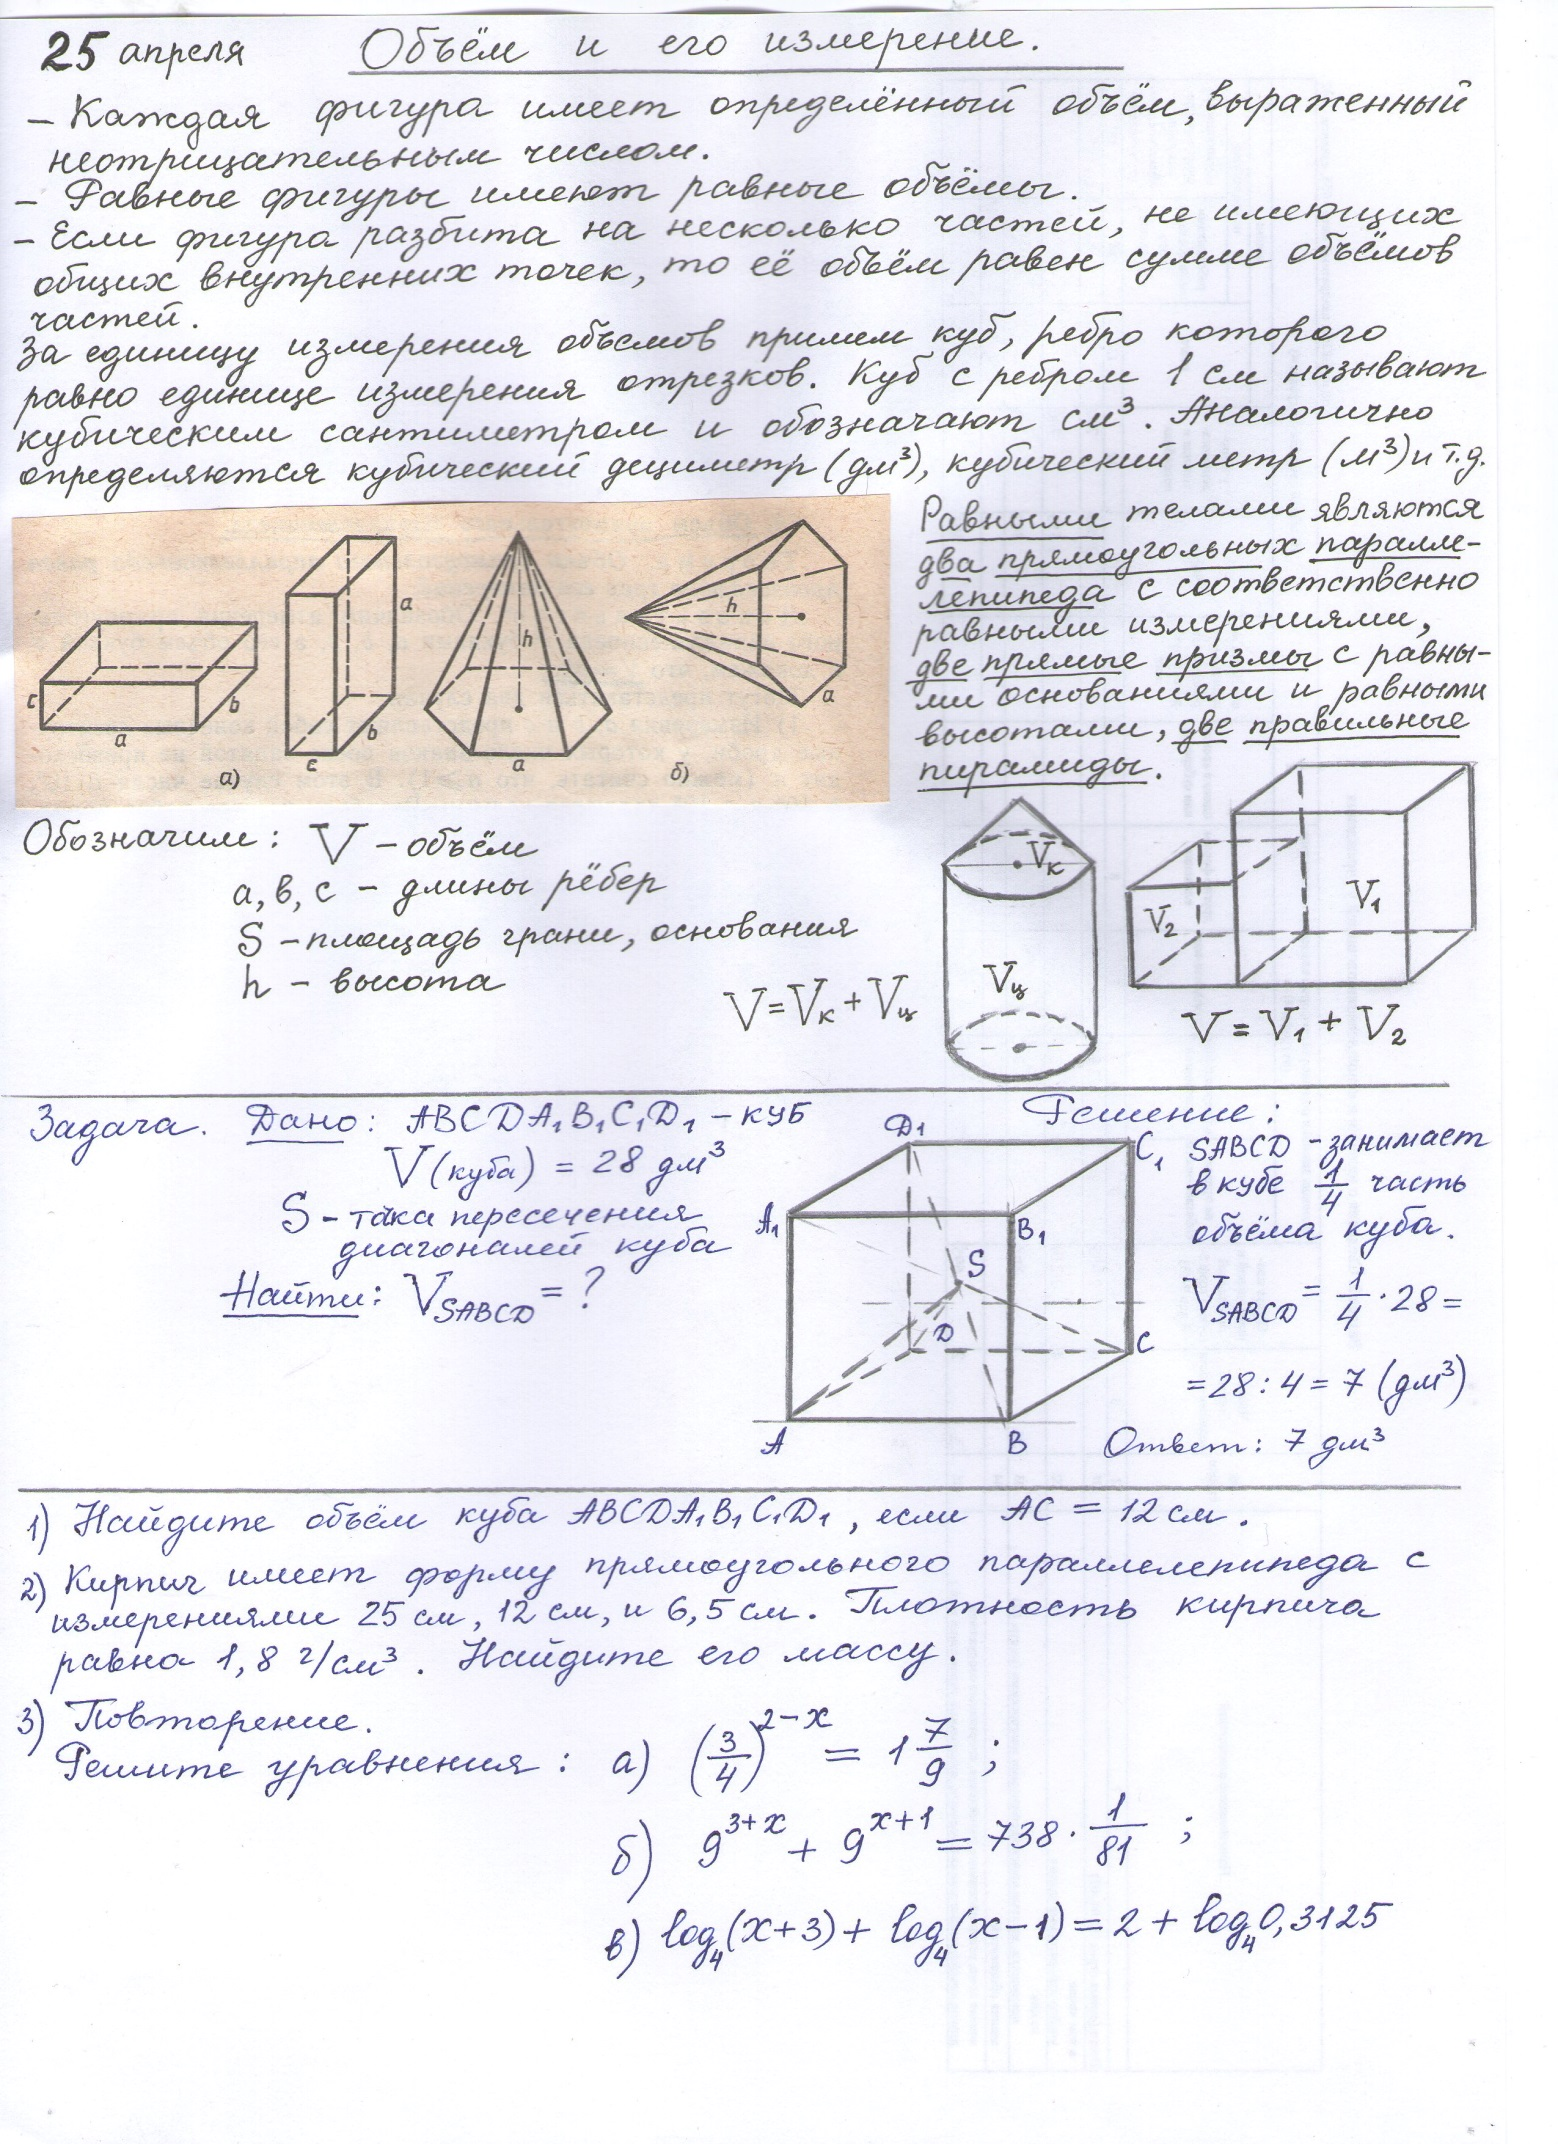 25 апреля Объём и его измерение.
– Каждая фигура имеет определённый объём, выраженный
неотрицательным числом.
– Равные фигуры имеют равные объёмы.
– Если фигура разбита на несколько частей, не имеющих
общих внутренних точек, то её объём равен сумме объёмов
частей.
За единицу измерения объемов примем куб, ребро которого
равно единице измерения отрезков. Куб с ребром 1 см называют
кубическим сантиметром и обозначают см³. Аналогично
определяются кубический дециметр (дм³), кубический метр (м³) и т.д.
Равными телами являются
два прямоугольных паралле-
лепипеда с соответственно
равными измерениями,
две прямые призмы с равны-
ми основаниями и равными
высотами, две правильные
пирамиды.
c a b
a c b
h a
h a
а) б)
Обозначим: V – объём
а, в, с – длины рёбер
S – площадь грани, основания
h – высота
V = Vк + Vц
Vк
Vц
V2 V1
V = V1 + V2
Задача. Дано: ABCDA1B1C1D1 – куб
V(куба) = 28 дм³
S – точка пересечения
диагоналей куба
Найти: VSABCD = ?
D1 C1
A1 B1
S
D C
A B
Решение:
SABCD – занимает
в кубе 1/4 часть
объёма куба.
VSABCD = 1/4 · 28 =
= 28 : 4 = 7 (дм³)
Ответ: 7 дм³
1) Найдите объём куба ABCDA1B1C1D1, если AC = 12 см.
2) Кирпич имеет форму прямоугольного параллелепипеда с
измерениями 25 см, 12 см, и 6,5 см. Плотность кирпича
равна 1,8 г/см³. Найдите его массу.
3) Повторение.
Решите уравнения: а) (3/4)^(2–x) = 1 7/9 ;
б) 9^(3+x) + 9^(x+1) = 738 · 1/81 ;
в) log₄(x+3) + log₄(x–1) = 2 + log₄0,3125